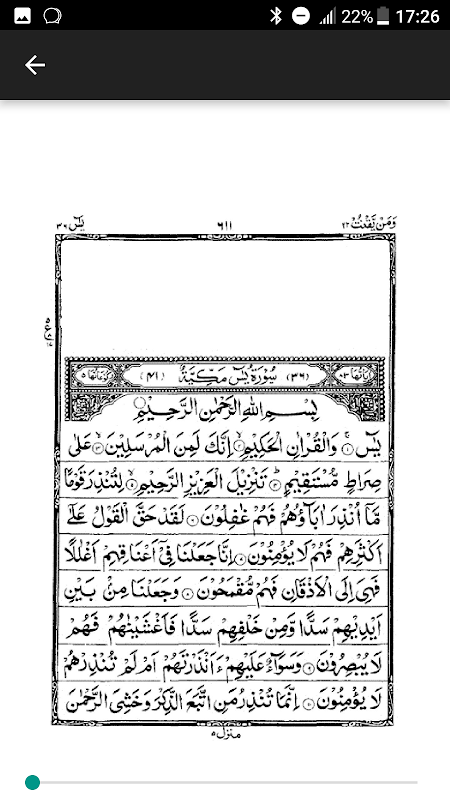 22% 17:26
وَمَنْ يَّقْنُتْ ۲۲ ٦١١ يٰسٓ ٣٦
اٰيَاتُهَا ٨٣ (٣٦) سُوْرَةُ يٰسٓ مَكِّيَّةٌ (٤١) رُكُوْعَاتُهَا ٥
بِسْمِ اللهِ الرَّحْمٰنِ الرَّحِيْمِ
يٰسٓ ۚ﴿١﴾ وَالْقُرْاٰنِ الْحَكِيْمِ ۙ﴿٢﴾ اِنَّكَ لَمِنَ الْمُرْسَلِيْنَ ۙ﴿٣﴾ عَلٰى
صِرَاطٍ مُّسْتَقِيْمٍ ؕ﴿٤﴾ تَنْزِيْلَ الْعَزِيْزِ الرَّحِيْمِ ۙ﴿٥﴾ لِتُنْذِرَ قَوْمًا
مَّاۤ اُنْذِرَ اٰبَآؤُهُمْ فَهُمْ غٰفِلُوْنَ ﴿٦﴾ لَقَدْ حَقَّ الْقَوْلُ عَلٰۤى
اَكْثَرِهِمْ فَهُمْ لَا يُؤْمِنُوْنَ ﴿٧﴾ اِنَّا جَعَلْنَا فِيْۤ اَعْنَاقِهِمْ اَغْلٰلًا
فَهِيَ اِلَى الْاَذْقَانِ فَهُمْ مُّقْمَحُوْنَ ﴿٨﴾ وَجَعَلْنَا مِنْۢ بَيْنِ
اَيْدِيْهِمْ سَدًّا وَّمِنْ خَلْفِهِمْ سَدًّا فَاَغْشَيْنٰهُمْ فَهُمْ
لَا يُبْصِرُوْنَ ﴿٩﴾ وَسَوَآءٌ عَلَيْهِمْ ءَاَنْذَرْتَهُمْ اَمْ لَمْ تُنْذِرْهُمْ
لَا يُؤْمِنُوْنَ ﴿١٠﴾ اِنَّمَا تُنْذِرُ مَنِ اتَّبَعَ الذِّكْرَ وَخَشِيَ الرَّحْمٰنَ
منزل ٥